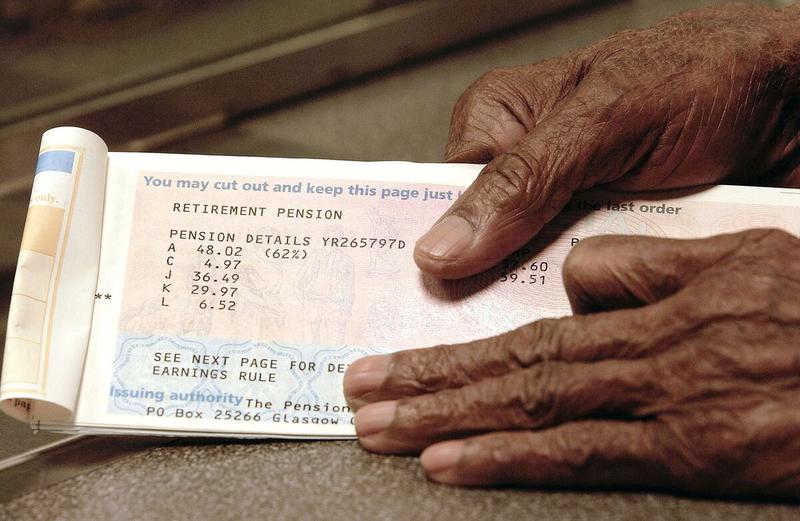 only.
You may cut out and keep this page just the last order
RETIREMENT PENSION
PENSION DETAILS YR265797D
A 48.02 (62%)
C 4.97
J 36.49
K 29.97
L 6.52
.60
59.51
**
SEE NEXT PAGE FOR
EARNINGS RULE
Issuing authority The Pension
PO Box 25266 Glasgow